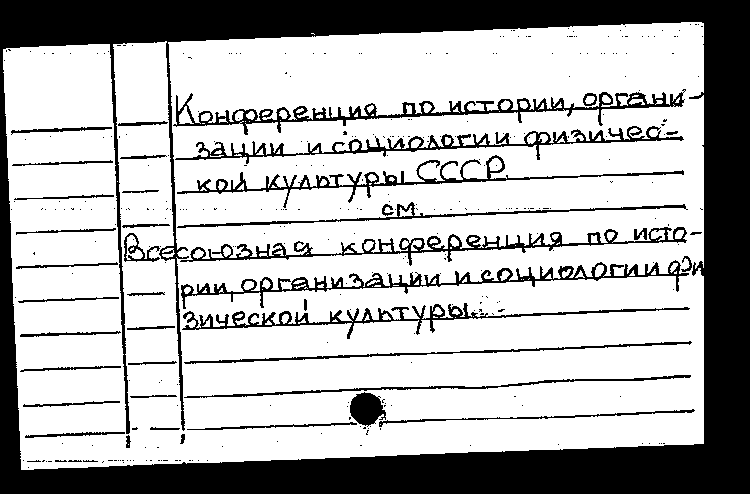 Конференция по истории, органи-
зации и социологии физичес-
кой культуры СССР
см.
Всесоюзная конференция по исто-
рии, организации и социологии фи
зической культуры...